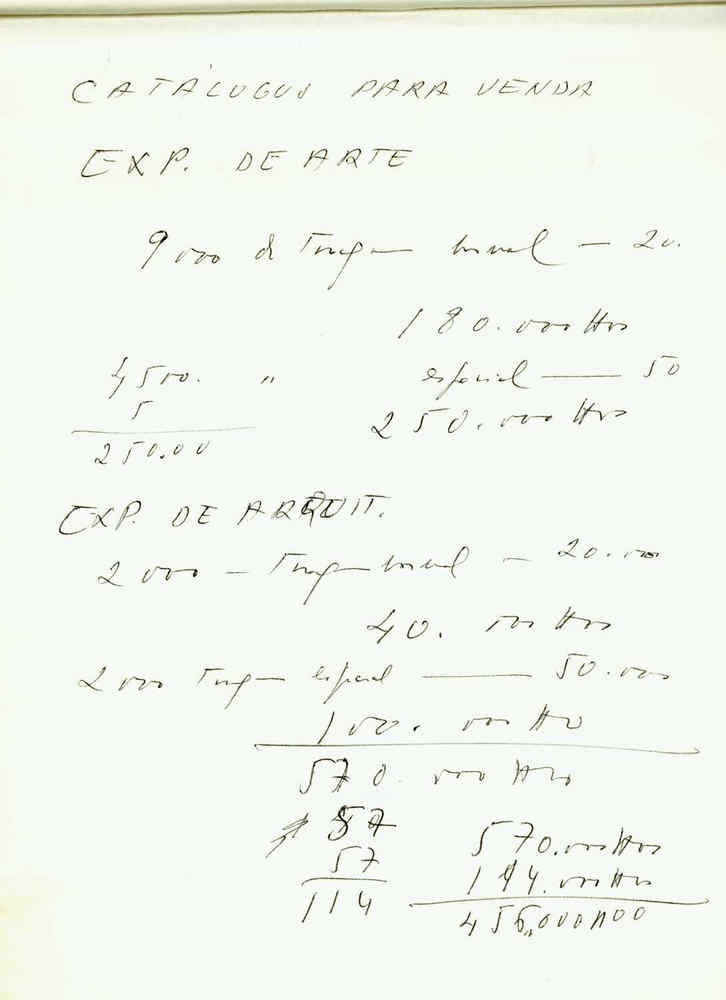 CATÁLOGOS PARA VENDA
EXP. DE ARTE
9000 de Tiragem normal — 20.
180.000 $00
4500. " especial — 50
5
250.000 $00
250.00
EXP. DE ARQUIT.
2000 — Tiragem normal — 20.000
40.000 $00
2000 Tiragem especial — 50.000
100.000 $00
570.000 $00
57
57
114
570.000 $00
114.000 $00
456.000 $00